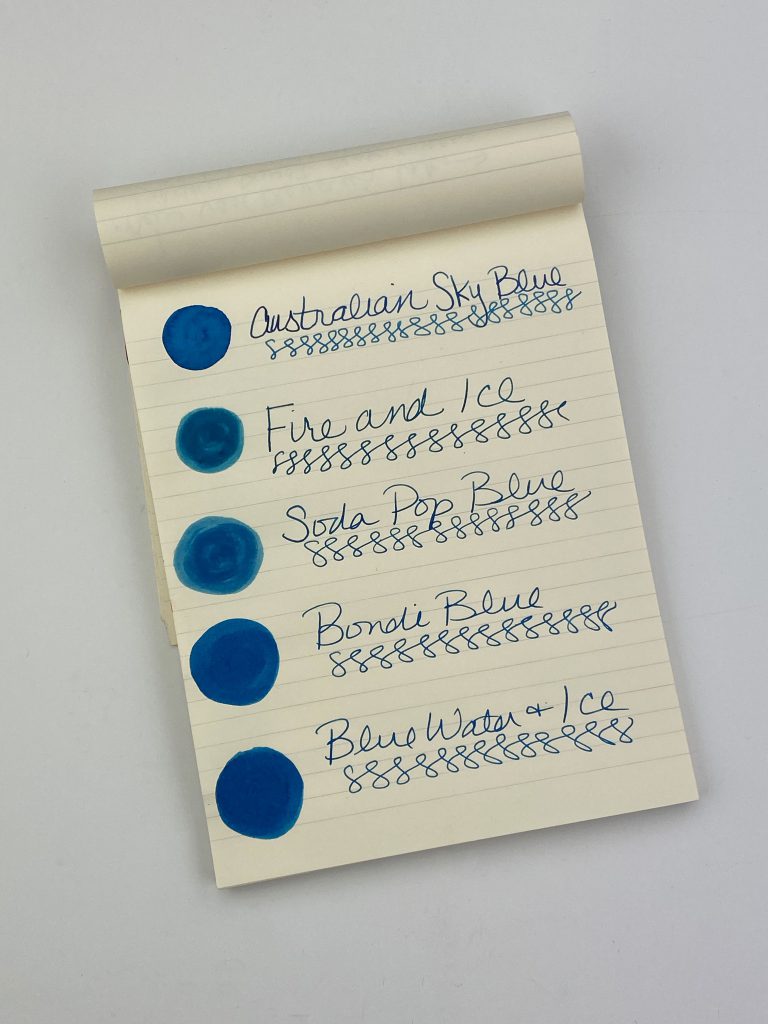 Australian Sky Blue
Fire and Ice
Soda Pop Blue
Bondi Blue
Blue Water + Ice